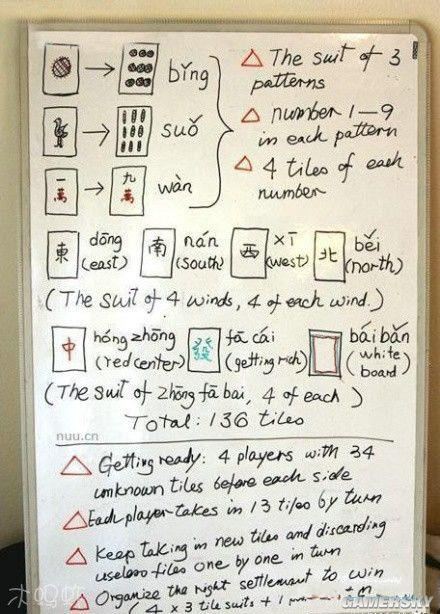 → bǐng
△ The suit of 3
patterns
→ suǒ
△ number 1—9
in each pattern
△ 4 tiles of each
number
一萬 → 九萬 wàn
東 dōng (east) 南 nán (south) 西 xī (west) 北 běi (north)
(The suit of 4 winds, 4 of each wind.)
中 hóng zhōng (red center) 發 fā cái (getting rich) bái bǎn (white board)
(The suit of zhōng fā bai, 4 of each)
Total: 136 tiles
nuu.cn
△ Getting ready: 4 players with 34
unknown tiles before each side
△ Each player takes in 13 tiles by turn
△ Keep taking in new tiles and discarding
useless tiles one by one in turn
△ Organize the right settlement to win
(4 x 3 tile suits + 1
GAMERSKY